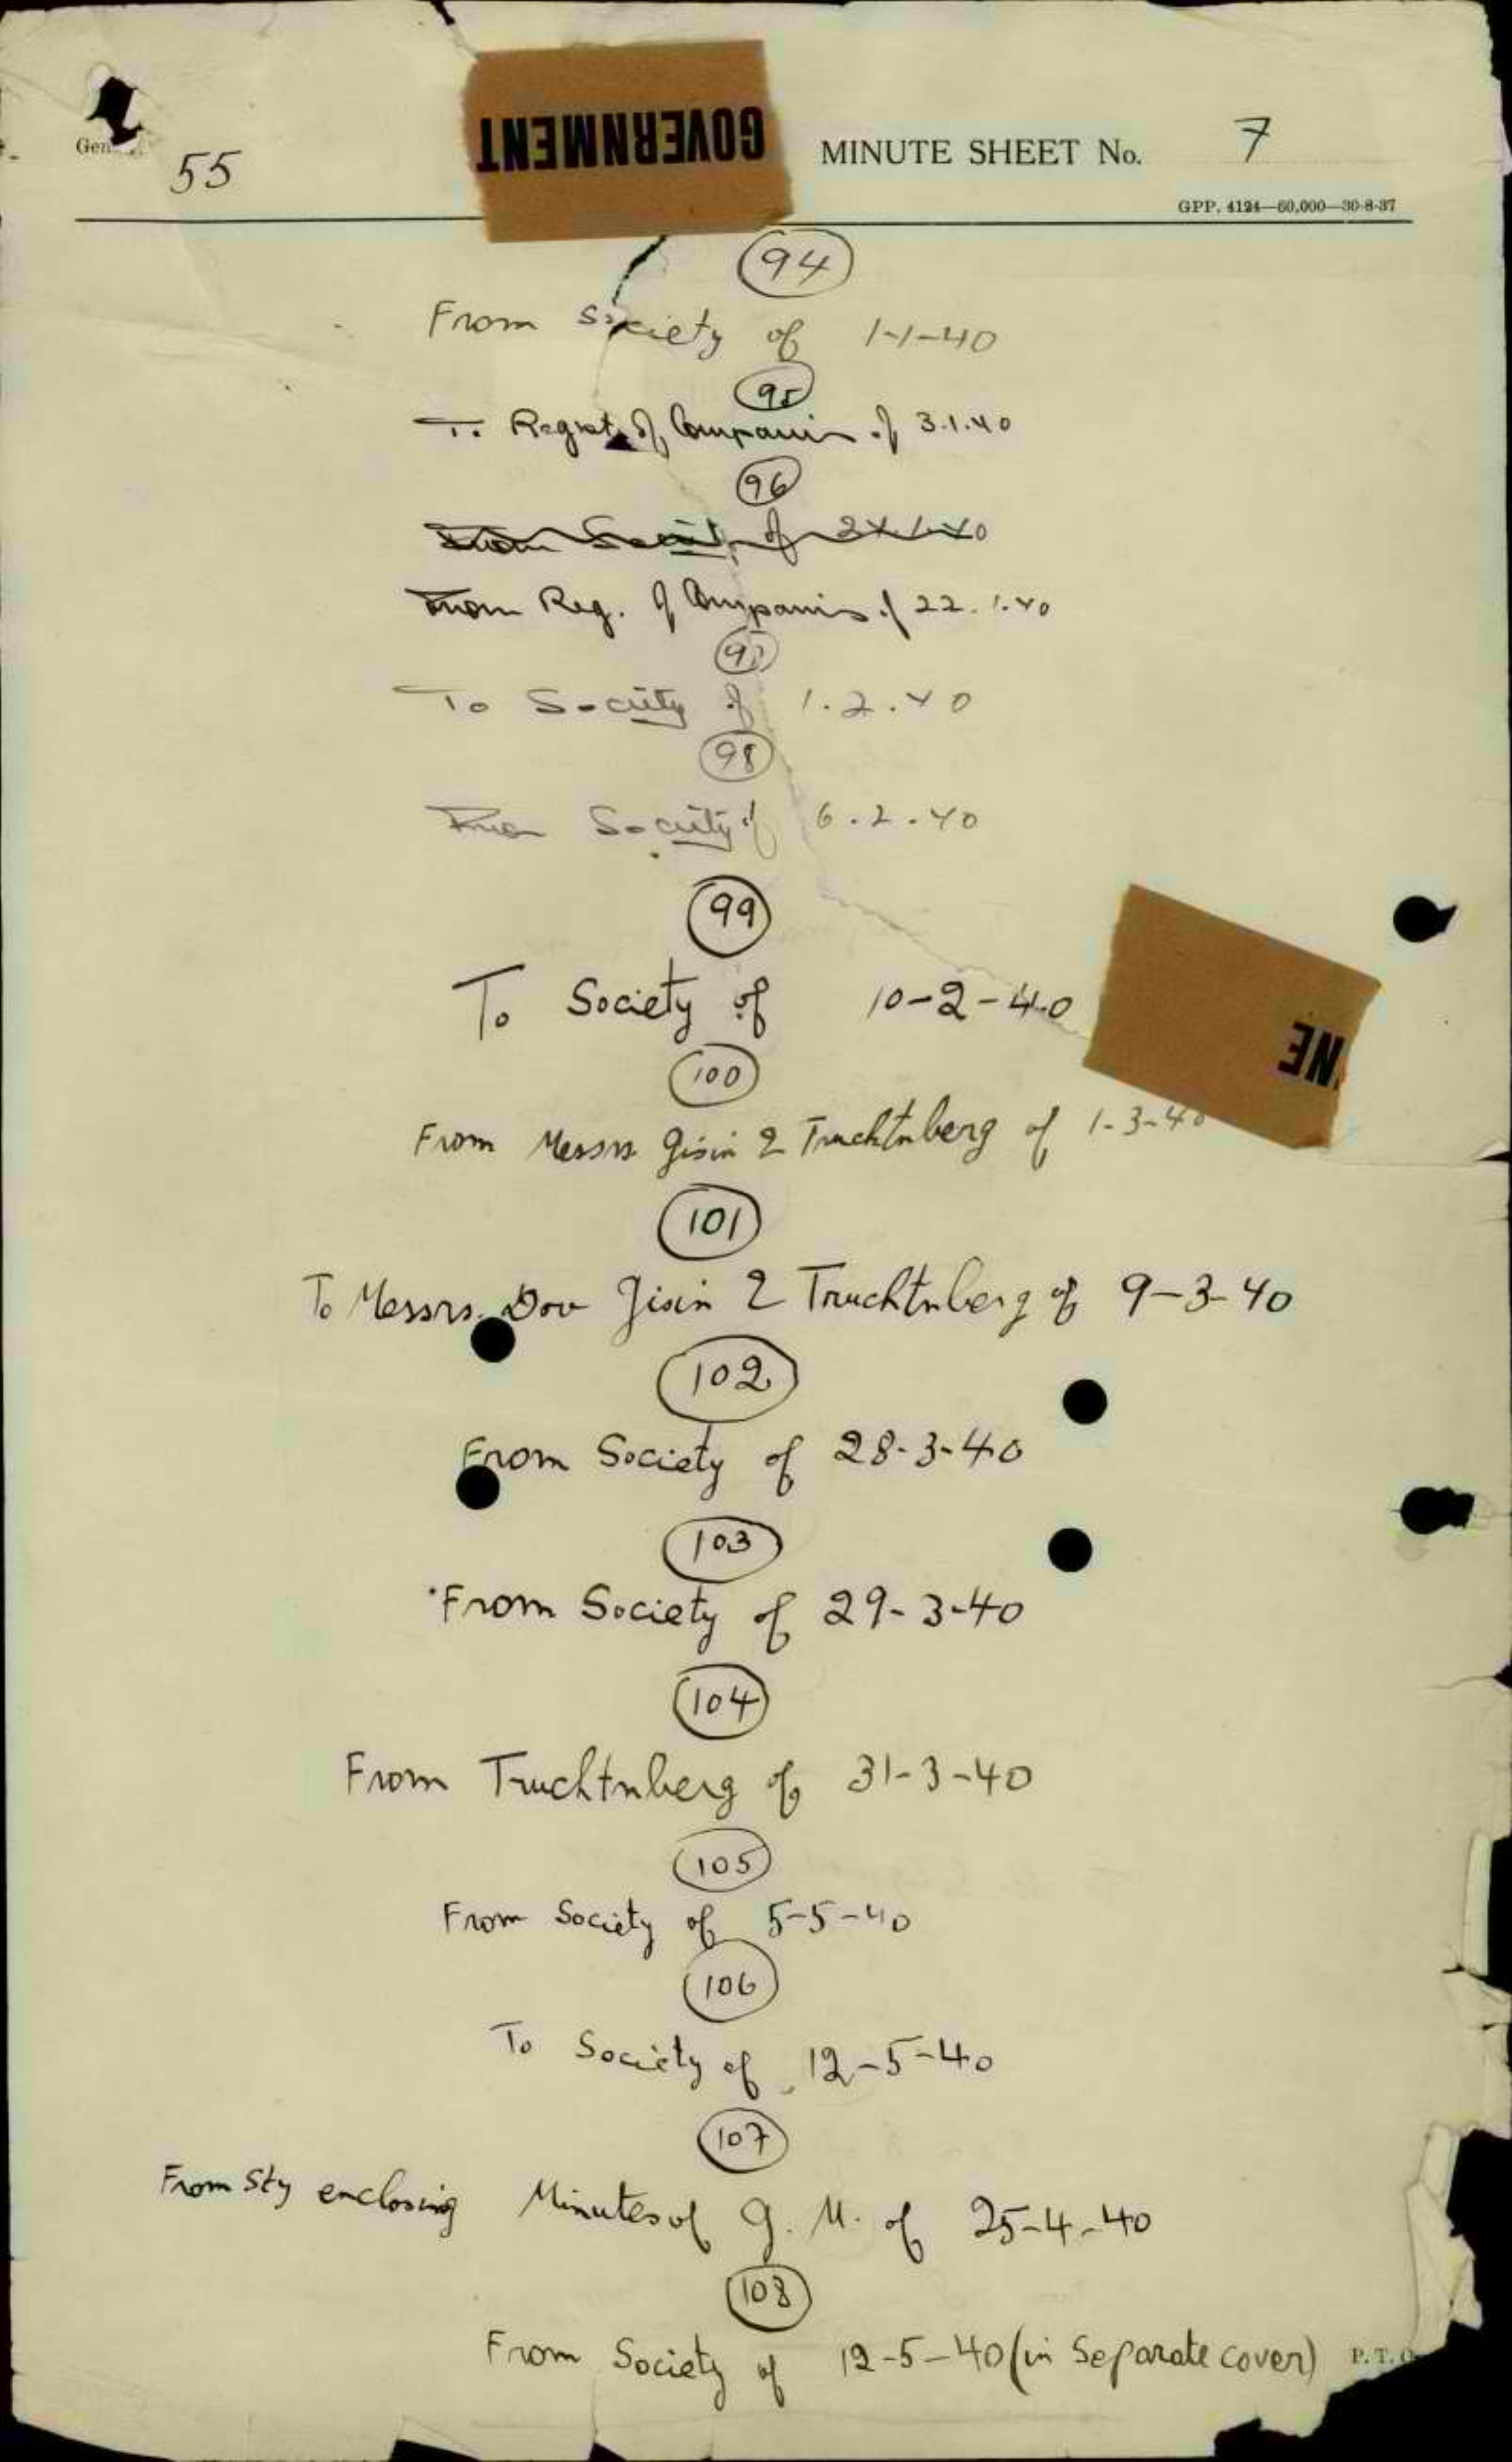 Gen
55
GOVERNMENT
MINUTE SHEET No. 7
GPP. 4124—60,000—30-8-37
94
From Society of 1-1-40
95
To Regist. of Companies of 3.1.40
96
From Society of 1.40
From Reg. of Companies of 22.1.40
97
To Society of 1.2.40
98
From Society of 6.2.40
99
To Society of 10-2-40
NE
100
From Messrs Gisin & Truchtnberg of 1-3-40
101
To Messrs. Dov Gisin & Truchtnberg of 9-3-40
102
From Society of 28-3-40
103
From Society of 29-3-40
104
From Truchtnberg of 31-3-40
105
From Society of 5-5-40
106
To Society of 12-5-40
107
From Sty enclosing Minutes of G. M. of 25-4-40
108
From Society of 12-5-40 (in Separate cover)
P.T.O